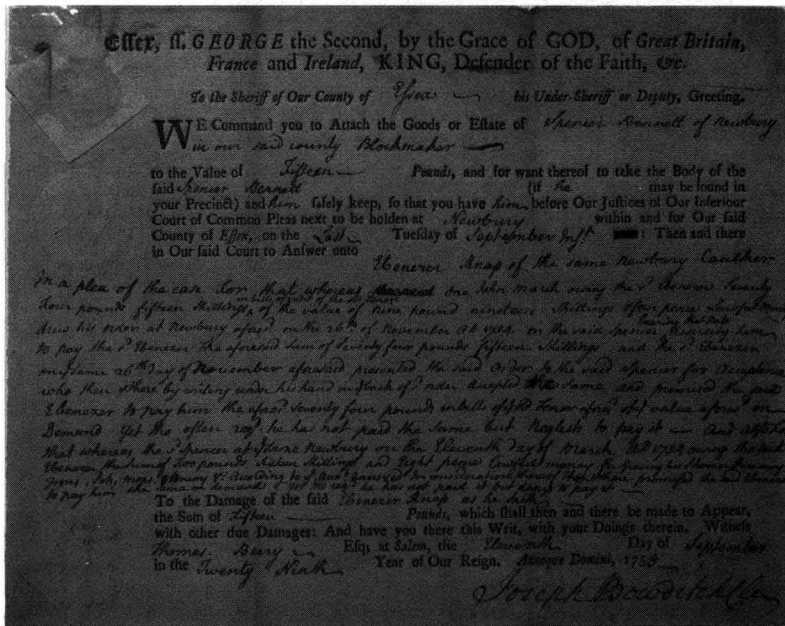 Essex, ss. GEORGE the Second, by the Grace of GOD, of Great Britain,
France and Ireland, KING, Defender of the Faith, &c.
To the Sheriff of Our County of Essex his Under-Sheriff or Deputy, Greeting.
WE Command you to Attach the Goods or Estate of Spencer Bennett of Newbury
in our said county Blockmaker
to the Value of Fifteen Pounds, and for want thereof to take the Body of the
said Spencer Bennett (if he may be found in
your Precinct) and him safely keep, so that you have him before Our Justices of Our Inferiour
Court of Common Pleas next to be holden at Newbury within and for Our said
County of Essex, on the Last Tuesday of September Inst. Then and there
in Our said Court to Answer unto
Ebenezer Knap of the same Newbury Caulker
In a plea of the case for that whereas one John March owing the sd. Ebenezer Seventy
four pounds fifteen Shillings in bills of the old tenor of the value of nine pound nineteen Shillings & four pence Lawful money
drew his order at Newbury aforesd. on the 26th of November AD 1754 on the said Spencer
to pay the sd. Ebenezer the aforesaid Sum of Seventy four pounds fifteen Shillings and the sd. Ebenezer
on same 26th Day of November aforesaid presented the said Order to the said Spencer for Acceptance
who then & there by writing under his hand on back of sd. order accepted the same and promised the said
Ebenezer to pay him the aforesd. Seventy four pounds in bills of old Tenor aforesd. of value aforesd. on
Demand Yet tho often reqd. he has not paid the Same but Neglects to pay it And also for
that whereas the sd. Spencer at same Newbury on the Eleventh day of March owing the said
Ebenezer the Sum of Two pounds Sixteen Shillings and Eight pence Lawful money
according to promised the said Ebenezer
to pay him the Same on demand Yet tho reqd. he has not paid it but neglects to pay it
To the Damage of the said Ebenezer Knap as he saith
the Sum of Fifteen Pounds, which shall then and there be made to Appear,
with other due Damages: And have you there this Writ, with your Doings therein. Witness
Thomas Berry Esq; at Salem, the Eleventh Day of September
in the Twenty Ninth Year of Our Reign. Annoque Domini, 175
Joseph Bowditch Cler